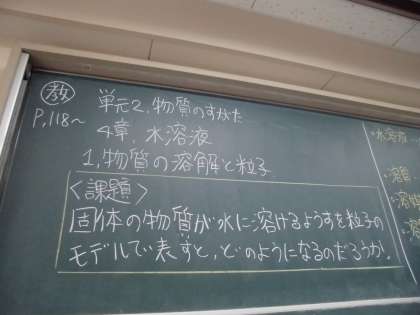 教 単元2.物質のすがた
P.118~ 4章.水溶液
1.物質の溶解と粒子
<課題>
固体の物質が水に溶けるようすを粒子の
モデルで表すと,どのようになるのだろうか.
・水溶液
・溶質